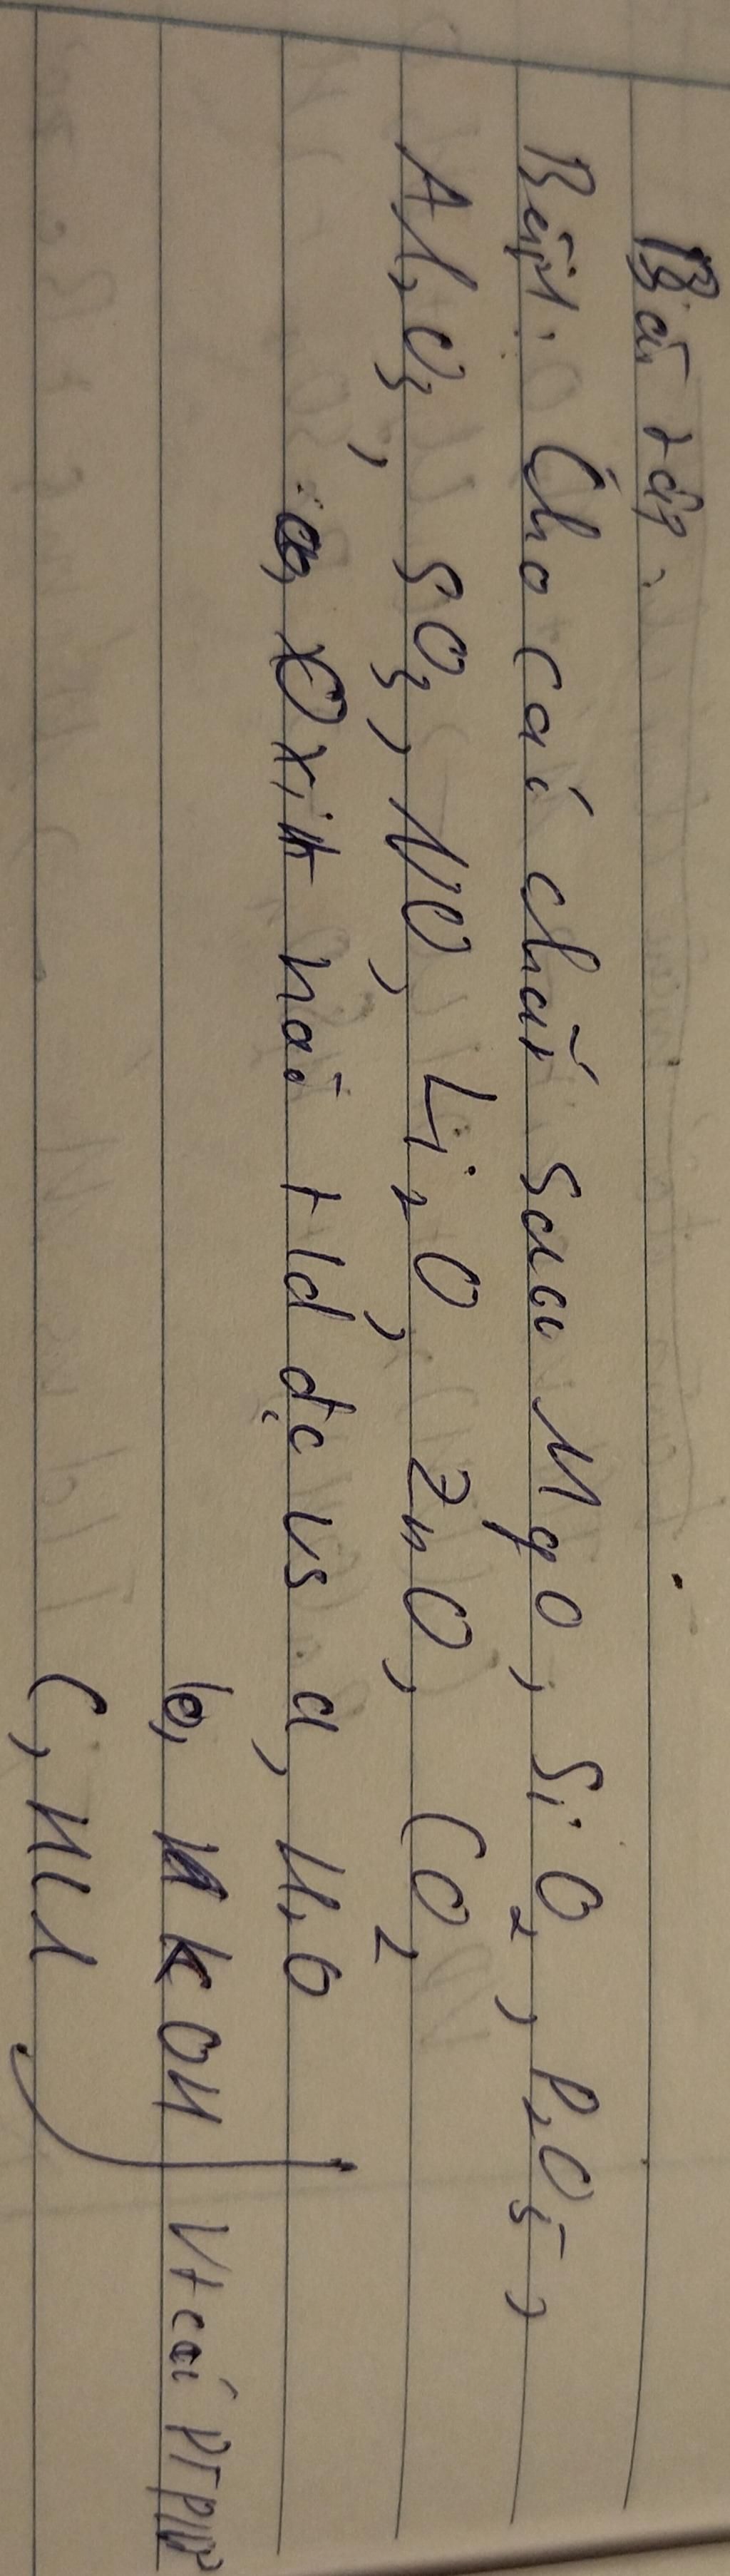 Bài tập:
Bài 1: Cho các chất sau MgO, SiO2, P2O5,
Al2O3, SO3, NO, Li2O, ZnO, CO2
a, Oxit nào t/d đc vs a, H2O
b, KOH
Vt các PTPƯ
c, HCl